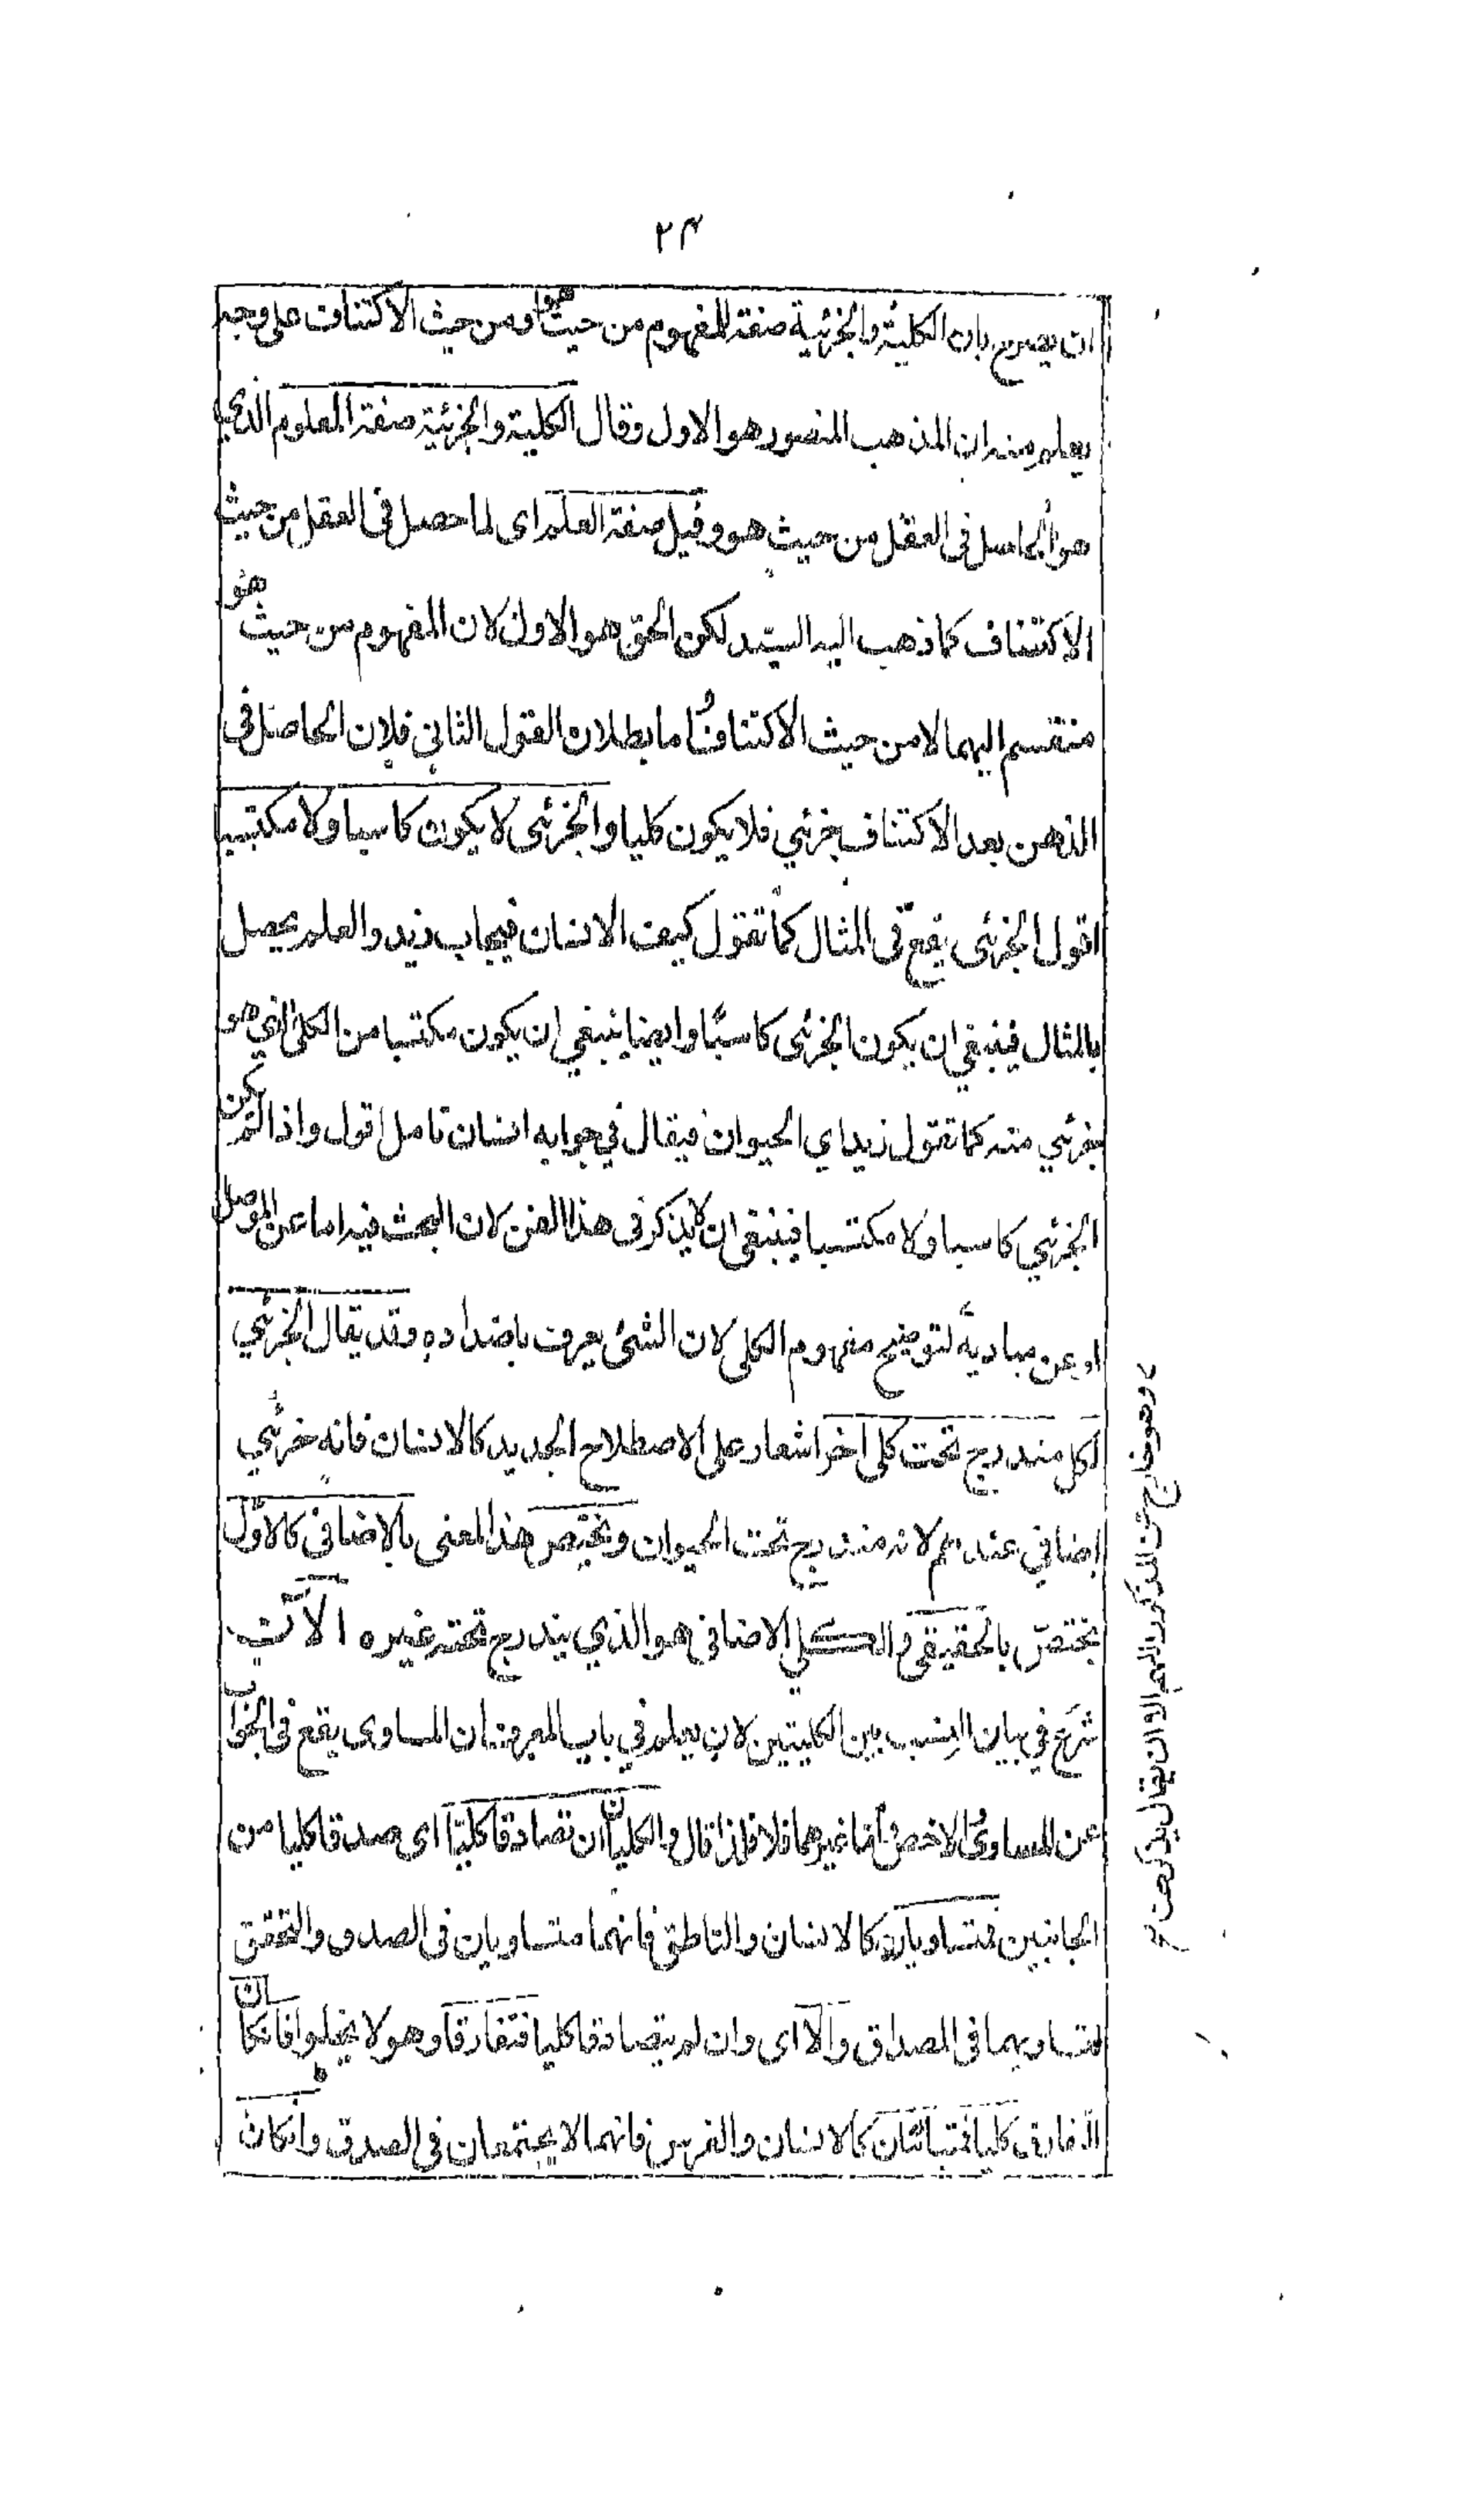 ٢٤
ان يصرح بان الكلية والجزئية صفة للمفهوم من حيث هو او من حيث الاكتناف على وجه
يعلم منه ان المذهب المنصور هو الاول وقال الكلية والجزئية صفة المعلوم الذي
هو الحاصل في العقل من حيث هو وقيل صفة العلم اى لما حصل في العقل من حيث
الاكتناف كما ذهب اليه السيّد لكن الحق هو الاول لان المفهوم من حيث هو
منقسم اليهما لا من حيث الاكتناف اما بطلان القول الثاني فلان الحاصل في
الذهن بعد الاكتناف جزئي فلا يكون كليا والجزئى لا يكون كاسبا ولا مكتسبا
اقول الجزئى يقع في المثال كما تقول كيف الانسان فيجاب زيد والعلم يحصل
بالمثال فينبغي ان يكون الجزئى كاسبًا وايضا ينبغي ان يكون مكتسبا من الكلى الذي هو
جزئي منه كما تقول زيد اي الحيوان فيقال في جوابه انسان تامل اقول واذا لم يكن
الجزئي كاسبا ولا مكتسبا فينبغى ان لا يذكر فى هذا الفن لان البحث فيه اما عن الموصل
او عن مباديه لتوضيح مفهوم الكلى لان الشئ يعرف باضداده وقد يقال الجزئي
لكل مندرج تحت كلى اخر اشعار على الاصطلاح الجديد كالانسان فانه جزئي
اضافي عندهم لانه مندرج تحت الحيوان ويختص هذا المعنى بالاضافى كالاوّل
يختصّ بالحقيقى والكلي الاضافي هو الذي يندرج تحته غيره الآن
شرع في بيان النسب بين الكليتين لان يعلم في باب المعرف ان المساوى يقع فى الجواب
عن المساوى الاخص واما غيرهما فلا فلذا قال والكليان ان تصادقا كليّا اى صدقا كليا من
الجانبين فمتساويان كالانسان والناطق فانهما متساويان فى الصدق والتحقق
لتساويهما فى المصداق والا اى وان لم يتصادقا كليا فتفارقا وهو لا يخلوا فان كان
التفارق كليا فمتبائنان كالانسان والفرس فانهما لا يجتمعان فى الصدق وان كان
وهو خارج عن المذكور اللهم الا ان يقال